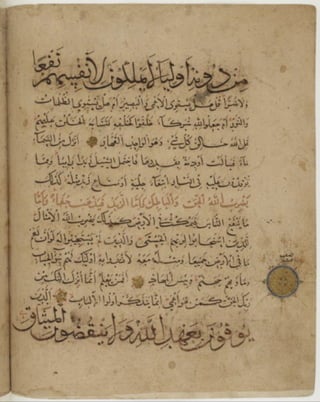 من دونه أولياء لا يملكون لأنفسهم نفعا
ولا ضرا قل هل يستوي الأعمى والبصير أم هل تستوي الظلمات
والنور أم جعلوا لله شركاء خلقوا كخلقه فتشابه الخلق عليهم
قل الله خالق كل شيء وهو الواحد القهار أنزل من السماء
ماء فسالت أودية بقدرها فاحتمل السيل زبدا رابيا ومما
يوقدون عليه في النار ابتغاء حلية أو متاع زبد مثله كذلك
يضرب الله الحق والباطل فأما الزبد فيذهب جفاء وأما
ما ينفع الناس فيمكث في الأرض كذلك يضرب الله الأمثال
للذين استجابوا لربهم الحسنى والذين لم يستجيبوا له لو أن لهم
ما في الأرض جميعا ومثله معه لافتدوا به أولئك لهم سوء الحساب
ومأواهم جهنم وبئس المهاد أفمن يعلم أنما أنزل إليك من
ربك الحق كمن هو أعمى إنما يتذكر أولوا الألباب الذين
يوفون بعهد الله ولا ينقضون الميثاق